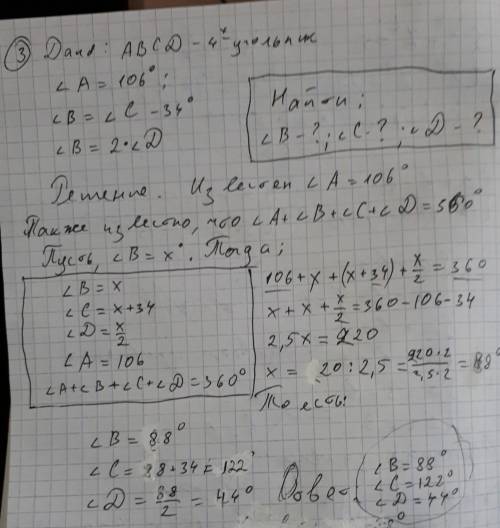 ③ Дано: ABCD - 4х угольник
∠A = 106°;
∠B = ∠C - 34°
∠B = 2·∠D
Найти;
∠B - ?; ∠C - ?; ∠D - ?
Решение. Известен ∠A = 106°
Также известно, что ∠A + ∠B + ∠C + ∠D = 360°
Пусть, ∠B = x°. Тогда;
∠B = x
∠C = x + 34
∠D = x/2
∠A = 106
∠A + ∠B + ∠C + ∠D = 360°
106 + x + (x + 34) + x/2 = 360
x + x + x/2 = 360 - 106 - 34
2,5x = 220
x = 20 : 2,5 = 220·2/2,5·2 = 88°
То есть:
∠B = 88°
∠C = 88 + 34 = 122°
∠D = 88/2 = 44°
Ответ
∠B = 88°
∠C = 122°
∠D = 44°